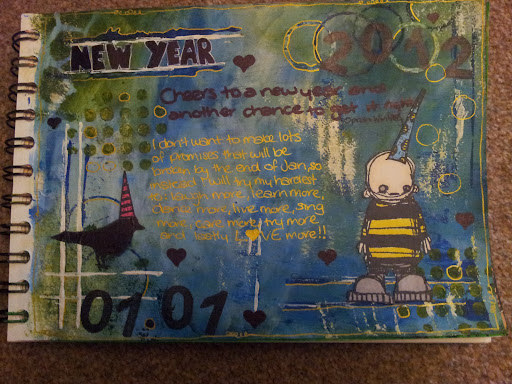 NEW YEAR
2012
Cheers to a new year and
another chance to get it right
Oprah Winfrey
I don't want to make lots
of promises that will be
broken by the end of Jan, so
instead I will try my hardest
to: laugh more, learn more,
dance more, live more, sing
more, care more, try more
and lastly LOVE more!!
01.01